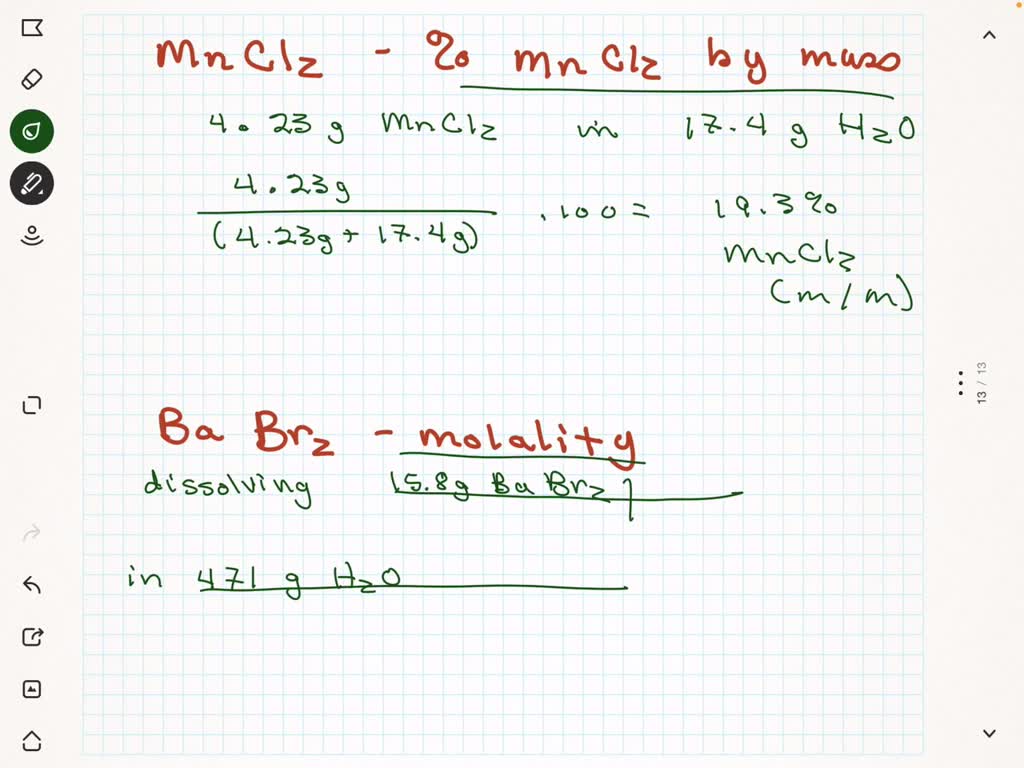 MnCl2 - % MnCl2 by mass
4.23 g MnCl2 in 17.4 g H2O
4.23g
(4.23g + 17.4g)
.100 = 19.3%
MnCl2
(m/m)
BaBr2 - molality
dissolving 15.8g BaBr2
in 471 g H2O
13 / 13